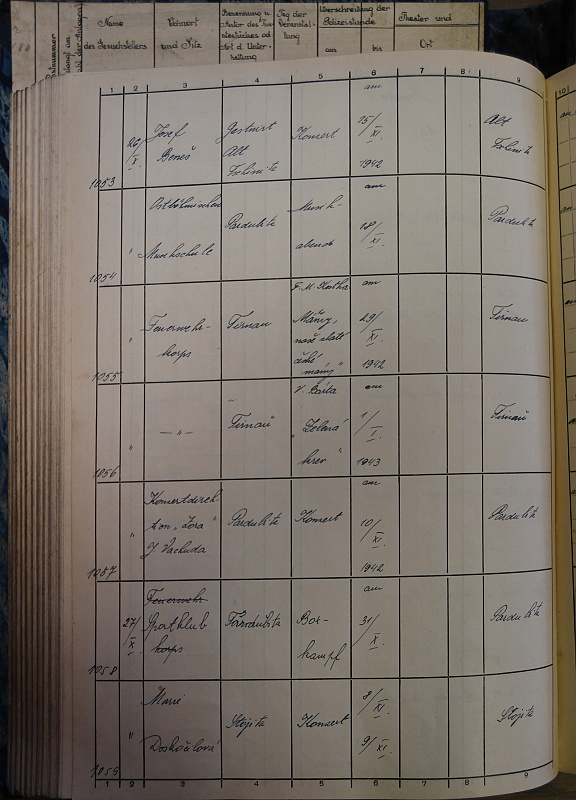 Name
des Gesuchstellers
Wohnort
und Sitz
Benennung u.
Autor des The-
atestückes od
Art d. Unter-
haltung
Tag der
Veranstal-
tung
Überschreitung der
Polizeistunde
am
bis
Theater und
Ort
1 2 3 4 5 6 7 8 9
10
1053
26/X.
Josef
Beneš
Alt
Konzert
am
15/XI.
1942
Alt
1054
"
Ostböhmische
Musikschule
Pardubitz
Musik-
abend
am
18/XI.
Pardubitz
1055
"
Feuerwehr-
korps
Tirnau
Mámy,
naše zlaté
české
mámy"
am
29/XI.
1942
Tirnau
1056
"
— " —
Tirnau
V. Bárta
"Zelená
krev"
am
1/I.
1943
Tirnau
1057
"
Konzertdirek-
tion "Zora"
J. Vachuda
Pardubitz
Konzert
am
10/XI.
1942
Pardubitz
1058
27/X.
Feuerwehr
Sportklub
korps
Pardubitz
Box-
kampf
am
31/X.
Pardubitz
1059
"
Marie
Doskočilová
Stojitz
Konzert
8/XI.
9/XI.
Stojitz
1 2 3 4 5 6 7 8 9